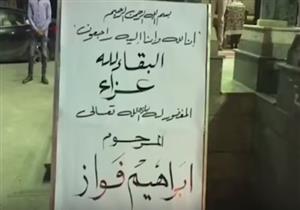 بسم الله الرحمن الرحيم
"إنا لله وإنا إليه راجعون"
البقاء لله
عزاء
المغفور له بإذن الله تعالى
المرحوم
ابراهيم فواز